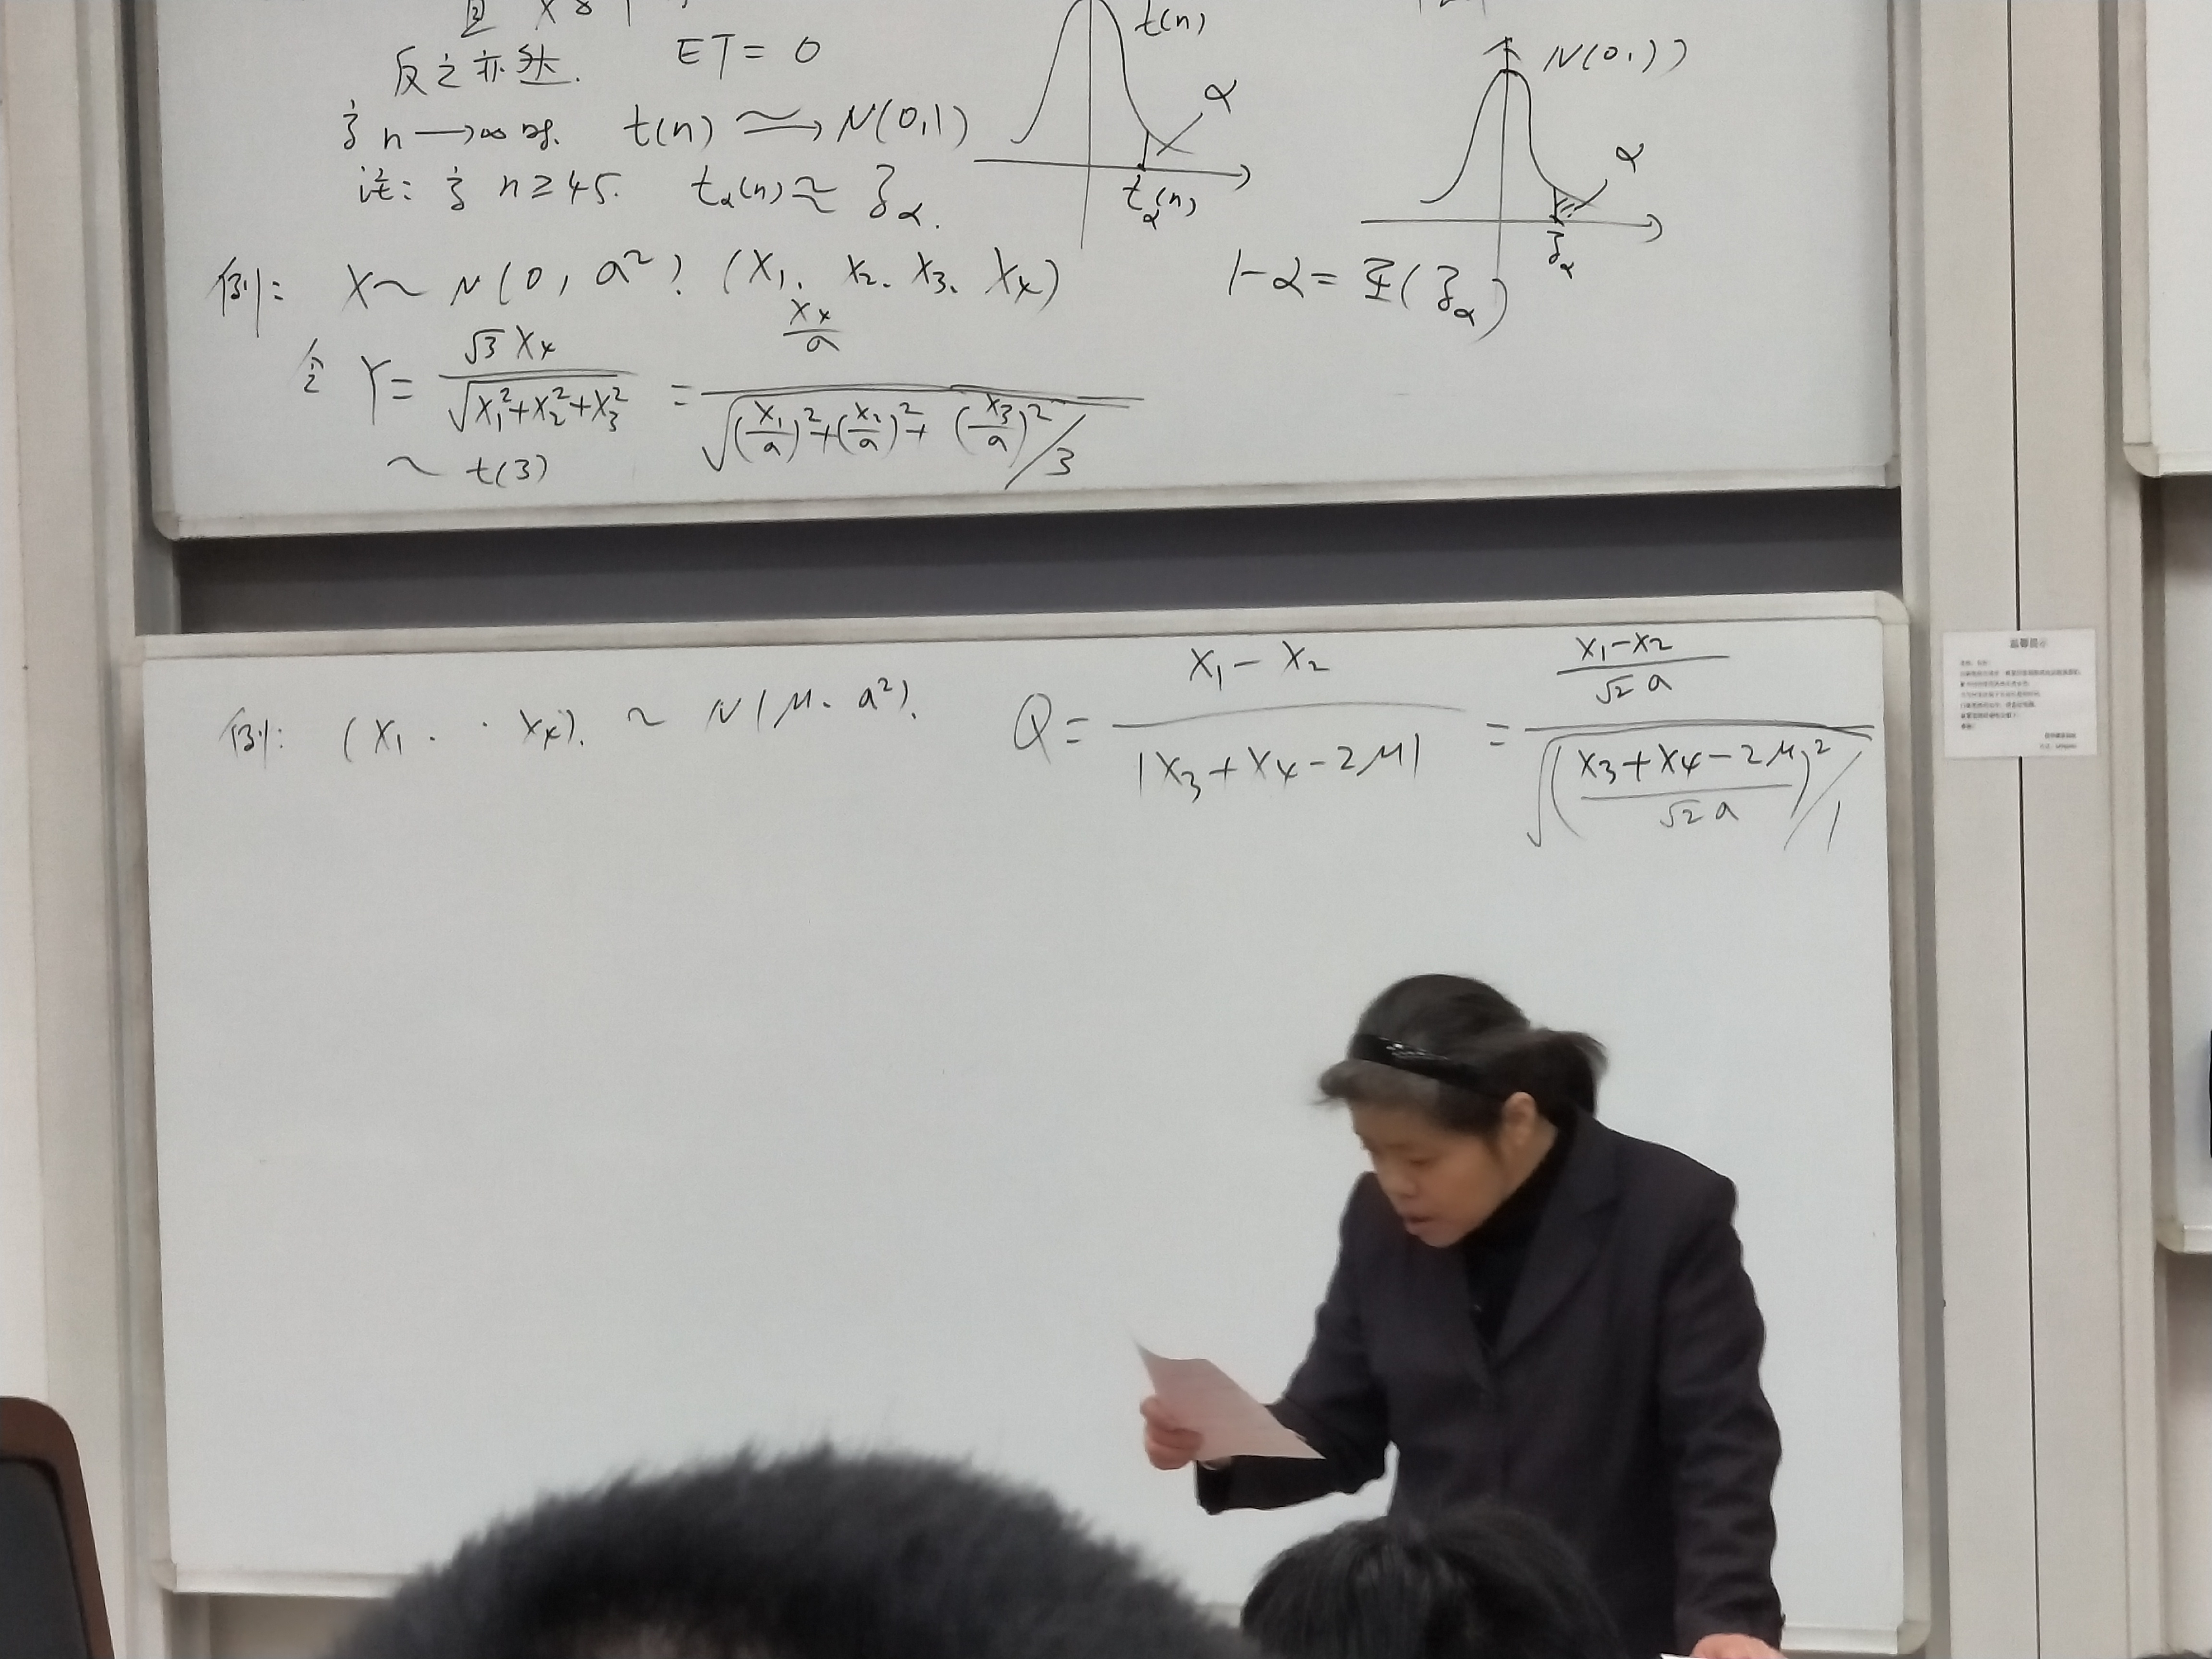 反之亦然. ET = 0
当 n → ∞ 时. t(n) ≈→ N(0,1)
注: 当 n ≥ 45. tα(n) ≈ zα.
t(n)
α
tα(n)
N(0,1)
α
zα
1-α = Φ(zα)
例: X ~ N(0, a²). (X₁. X₂. X₃. X₄)
令 Y = √3 X₄ / √(X₁²+X₂²+X₃²) = (X₄/a) / √(((X₁/a)²+(X₂/a)²+(X₃/a)²)/3)
~ t(3)
例: (X₁ . . X₄). ~ N(μ. a²). Q = (X₁ - X₂) / |X₃+X₄-2μ| = ((X₁-X₂)/(√2 a)) / √(((X₃+X₄-2μ)/(√2 a))²/1)
温馨提示